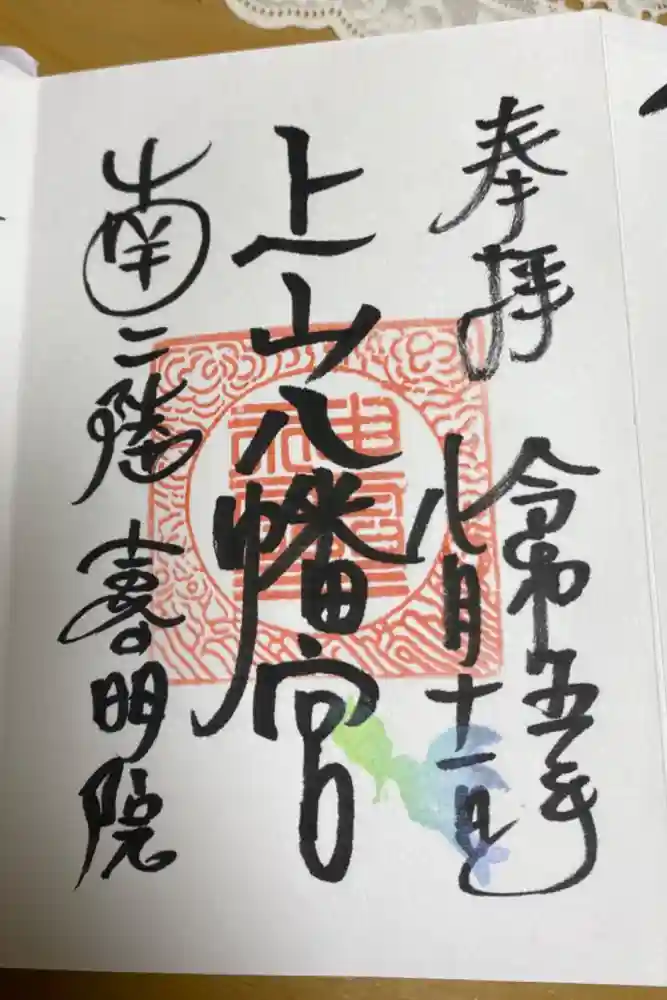 奉拝
令和五年
八月十一日
上山八幡宮
南三陸
喜明院